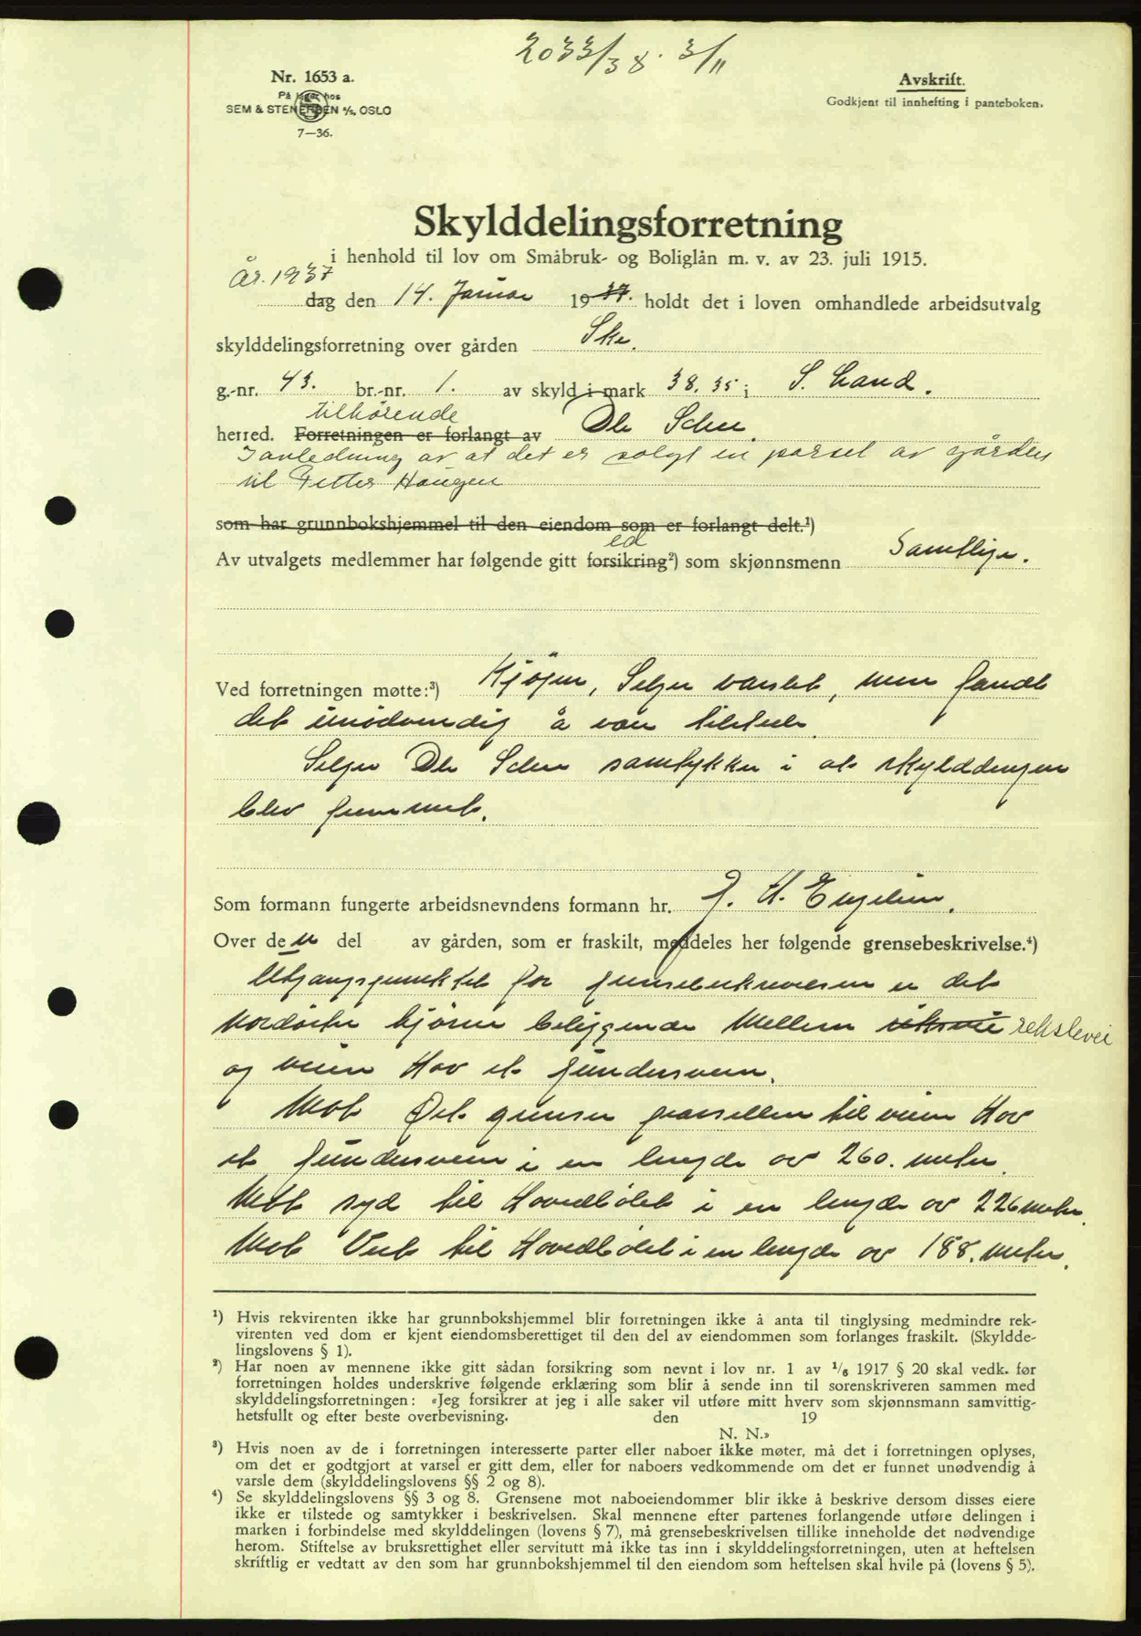 2033/38. 3/11
Nr. 1653 a.
På lager hos
SEM & STENERSEN A/S, OSLO
7—36.
Avskrift.
Godkjent til innhefting i panteboken.
Skylddelingsforretning
i henhold til lov om Småbruk- og Boliglån m. v. av 23. juli 1915.
År. 1937
dag den 14. Januar 1937. holdt det i loven omhandlede arbeidsutvalg
skylddelingsforretning over gården
g.-nr. 43. br.-nr. 1. av skyld i mark 38.35 i S. Land.
tilhørende
herred. Forretningen er forlangt av Ole
I anledning av at det er solgt en parsel av gården
til Petter Haugen
som har grunnbokshjemmel til den eiendom som er forlangt delt.¹)
ed
Av utvalgets medlemmer har følgende gitt forsikring²) som skjønnsmenn Samtlige.
Ved forretningen møtte:³) Kjøper, Selger varslet, men fandt
det unødvendig å være tilstede.
Selger Ole samtykker i at skylddelingen
blev fremmet.
Som formann fungerte arbeidsnevndens formann hr. J. H. Engelien.
Over den del av gården, som er fraskilt, meddeles her følgende grensebeskrivelse.⁴)
Utgangspunktet for grensebeskrivelsen er det
nordøstre hjørne beliggende mellem riksveie rekslevei
og veien Hov st.
Mot Øst grenser parsellen til veien Hov
st. i en lengde av 260. meter.
Mot syd til Hovedbølet i en lengde av 226 meter.
Mot Vest til Hovedbølet i en lengde av 188. meter.
¹) Hvis rekvirenten ikke har grunnbokshjemmel blir forretningen ikke å anta til tinglysing medmindre rek-
virenten ved dom er kjent eiendomsberettiget til den del av eiendommen som forlanges fraskilt. (Skyldde-
lingslovens § 1).
²) Har noen av mennene ikke gitt sådan forsikring som nevnt i lov nr. 1 av ¹/₆ 1917 § 20 skal vedk. før
forretningen holdes underskrive følgende erklæring som blir å sende inn til sorenskriveren sammen med
skylddelingsforretningen: «Jeg forsikrer at jeg i alle saker vil utføre mitt hverv som skjønnsmann samvittig-
hetsfullt og efter beste overbevisning. den 19
N. N.»
³) Hvis noen av de i forretningen interesserte parter eller naboer ikke møter, må det i forretningen oplyses,
om det er godtgjort at varsel er gitt dem, eller for naboers vedkommende om det er funnet unødvendig å
varsle dem (skylddelingslovens §§ 2 og 8).
⁴) Se skylddelingslovens §§ 3 og 8. Grensene mot naboeiendommer blir ikke å beskrive dersom disses eiere
ikke er tilstede og samtykker i beskrivelsen. Skal mennene efter partenes forlangende utføre delingen i
marken i forbindelse med skylddelingen (lovens § 7), må grensebeskrivelsen tillike inneholde det nødvendige
herom. Stiftelse av bruksrettighet eller servitutt må ikke tas inn i skylddelingsforretningen, uten at heftelsen
skriftlig er vedtatt av den som har grunnbokshjemmel til den eiendom som heftelsen skal hvile på (lovens § 5).